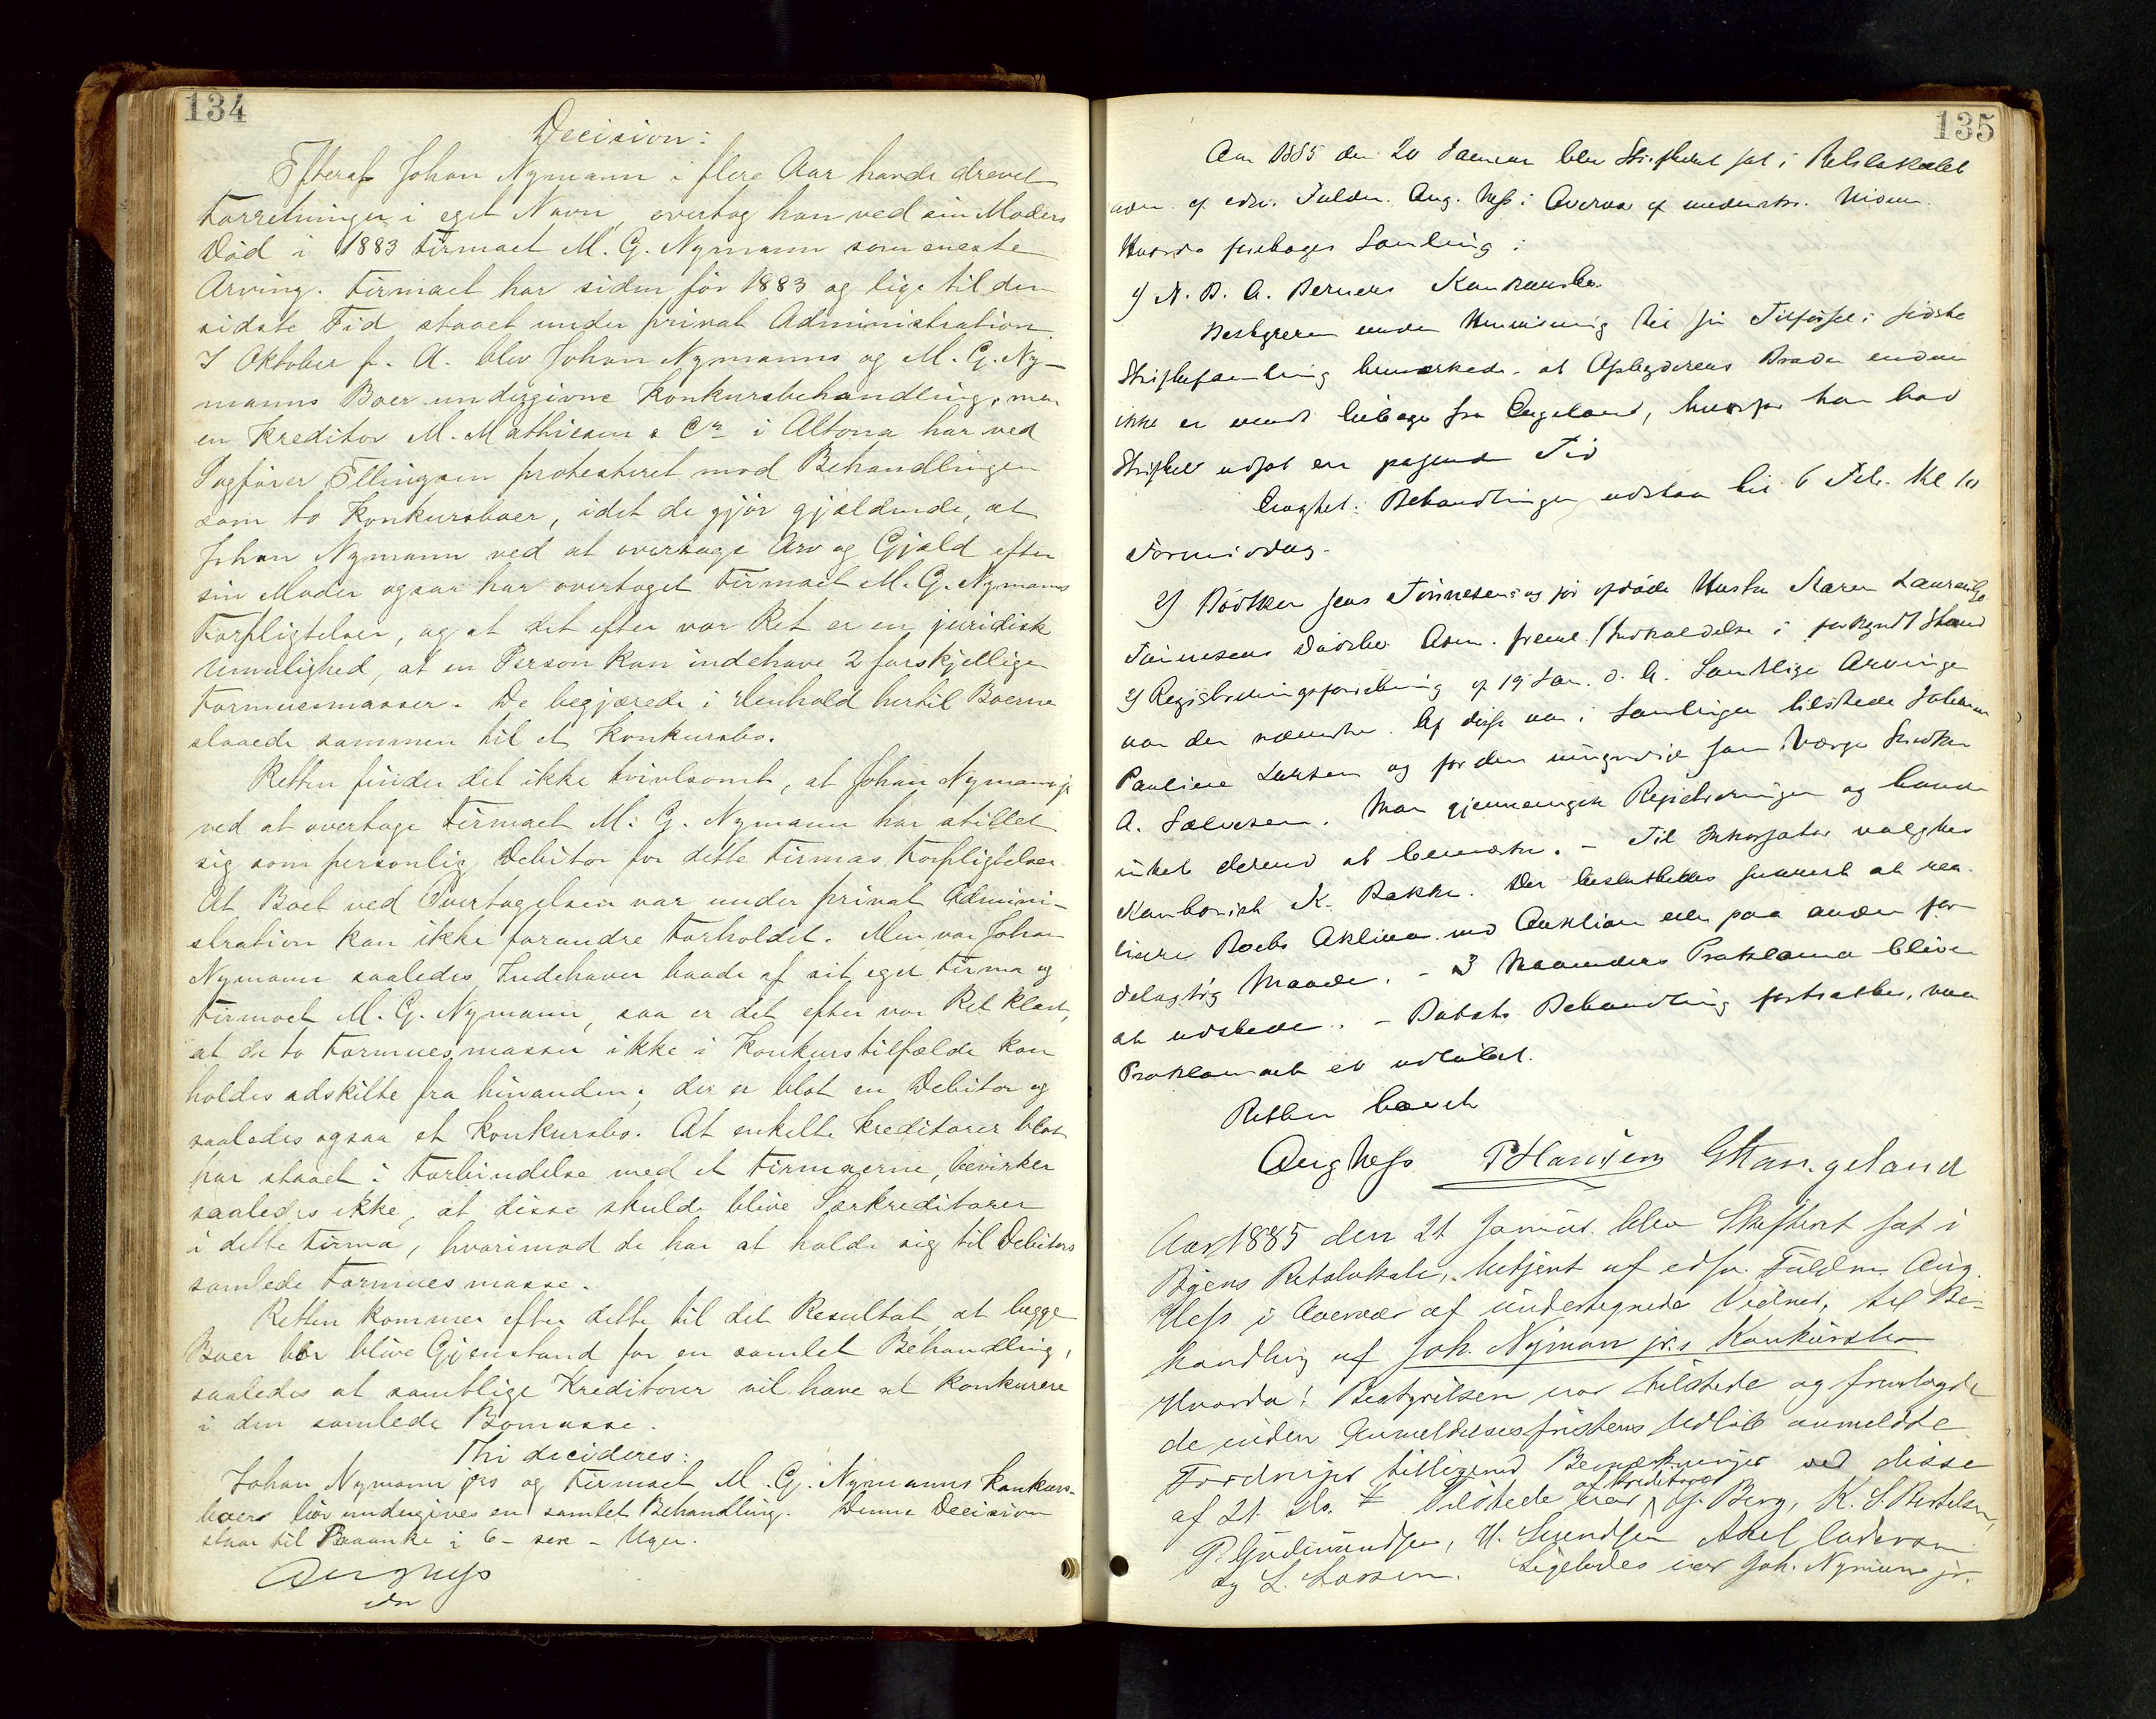 134
Decision:
Efterat Johan Nymann i flere Aar havde drevet
Forretninger i eget Navn, overtog han ved sin Moders
Død i 1883 Firmaet M. G. Nymann som eneste
Arving. Firmaet har siden før 1883 og lige til den
sidste Tid staaet under privat Administration
I Oktober f. A. blev Johan Nymanns og M. G. Ny-
manns Boer undergivne Konkursbehandling, men
en Kreditor M. Mathiesen & Co i Altona har ved
Sagfører Ellingsen protesteret mod Behandlingen
som to Konkursboer, idet de gjør gjældende, at
Johan Nymann ved at overtage Arv og Gjæld efter
sin Moder ogsaa har overtaget Firmaet M. G. Nymanns
Forpligtelser, og at det efter vor Ret er en juridisk
Umulighed, at en Person kan indehave 2 forskjellige
Formuesmasser. De begjærede i Henhold hertil Boerne
slaaede sammen til et Konkursbo.
Retten finder det ikke tvivlsomt, at Johan Nymann jr
ved at overtage Firmaet M. G. Nymann har stillet
sig som personlig Debitor for dette Firmas Forpligtelser
At Boet ved Overtagelsen var under privat Admini-
stration kan ikke forandre Forholdet. Men var Johan
Nymann saaledes Indehaver baade af sit eget Firma og
Firmaet M. G. Nymann, saa er det efter vor Ret klart,
at de to Formuesmasser ikke i Konkurstilfælde kan
holdes adskilte fra hinanden; der er blot en Debitor og
saaledes ogsaa et Konkursbo. At enkelte Kreditorer blot
har staaet i Forbindelse med et Firmaerne, bevirker
saaledes ikke, at disse skulde blive Særkreditorer
i dette Firma, hvorimod de har at holde sig til Debitors
samlede Formuesmasse.
Retten kommer efter dette til det Resultat, at begge
Boer bør blive Gjenstand for en samlet Behandling,
saaledes at samtlige Kreditorer vil have at konkurere
i den samlede Bomasse.
Thi decideres:
Johan Nymann jrs og Firmaet M. G. Nymanns Konkurs-
boer bør undergives en samlet Behandling. Denne Decision
staar til Paaanke i 6 - sex - Uger.
Aug Hess
135
Aar 1885 den 20 Januar blev Skifteret sat i Retslokalet
af edsv. Fuldm. Aug. Hess i Overvær af underskr. Vidner.
Hvorda foretoges Samling i
1) N. B. A. Berners Konkursbo.
Bestyreren under Henvisning til sin Tilførsel i sidste
Skiftesamling bemærkede at Opbyderens Broder endnu
ikke er vendt tilbage fra England, hvorfor han bad
Skiftet udsat en passende Tid
Eragtet: Behandlingen udstaar til 6 Feb. Kl 10
Formiddag.
2) Bødker Jens Tønnesens og før afdøde Hustru Karen
Tønnesens Dødsbo. Adm. freml. 1) Indkaldelse i forkyndt Stand
2) Registreringsforretning af 19 Jan. d. A. Samtlige Arvinger
var der nævnte. Af disse var i Samlingen tilstede Johanne
Pauline Larsen og for den umyndige som Værge Snedker
A. Salvesen. Man gjennemgik Registreringen og havde
intet derved at bemærke. - Til Inkassator valgtes
Kontorist K. Bakke. Der besluttedes forøvrigt at rea-
lisere Boets Aktiva ved Auktion eller paa anden for-
delagtig Maade. - 3 Maaneders Proklama bliver
at udstede. - Boets Behandling fortsættes, naar
Proklamaet er udløbet.
Retten hævet
Aug Hess P Hansen G Stangeland
Aar 1885 den 21 Januar blev Skifteret sat i
Byens Retslokale, betjent af edsv. Fuldm. Aug.
Hess i Overvær af undertegnede Vidner, til Be-
handling af Joh. Nyman jr.s Konkursbo
Hvorda! Bestyrelsen var tilstede og fremlagde
de inden Anmeldelsesfristens Udløb anmeldte
Fordringer tilligemed Bemærkninger ved disse
af 21 ds. Tilstede var af Kreditorer J. Berg, K. S. Bertelsen,
P. Gudmundsen, H. Svendsen Axel
og L. Larsen. Ligeledes var Joh. Nyman jr.